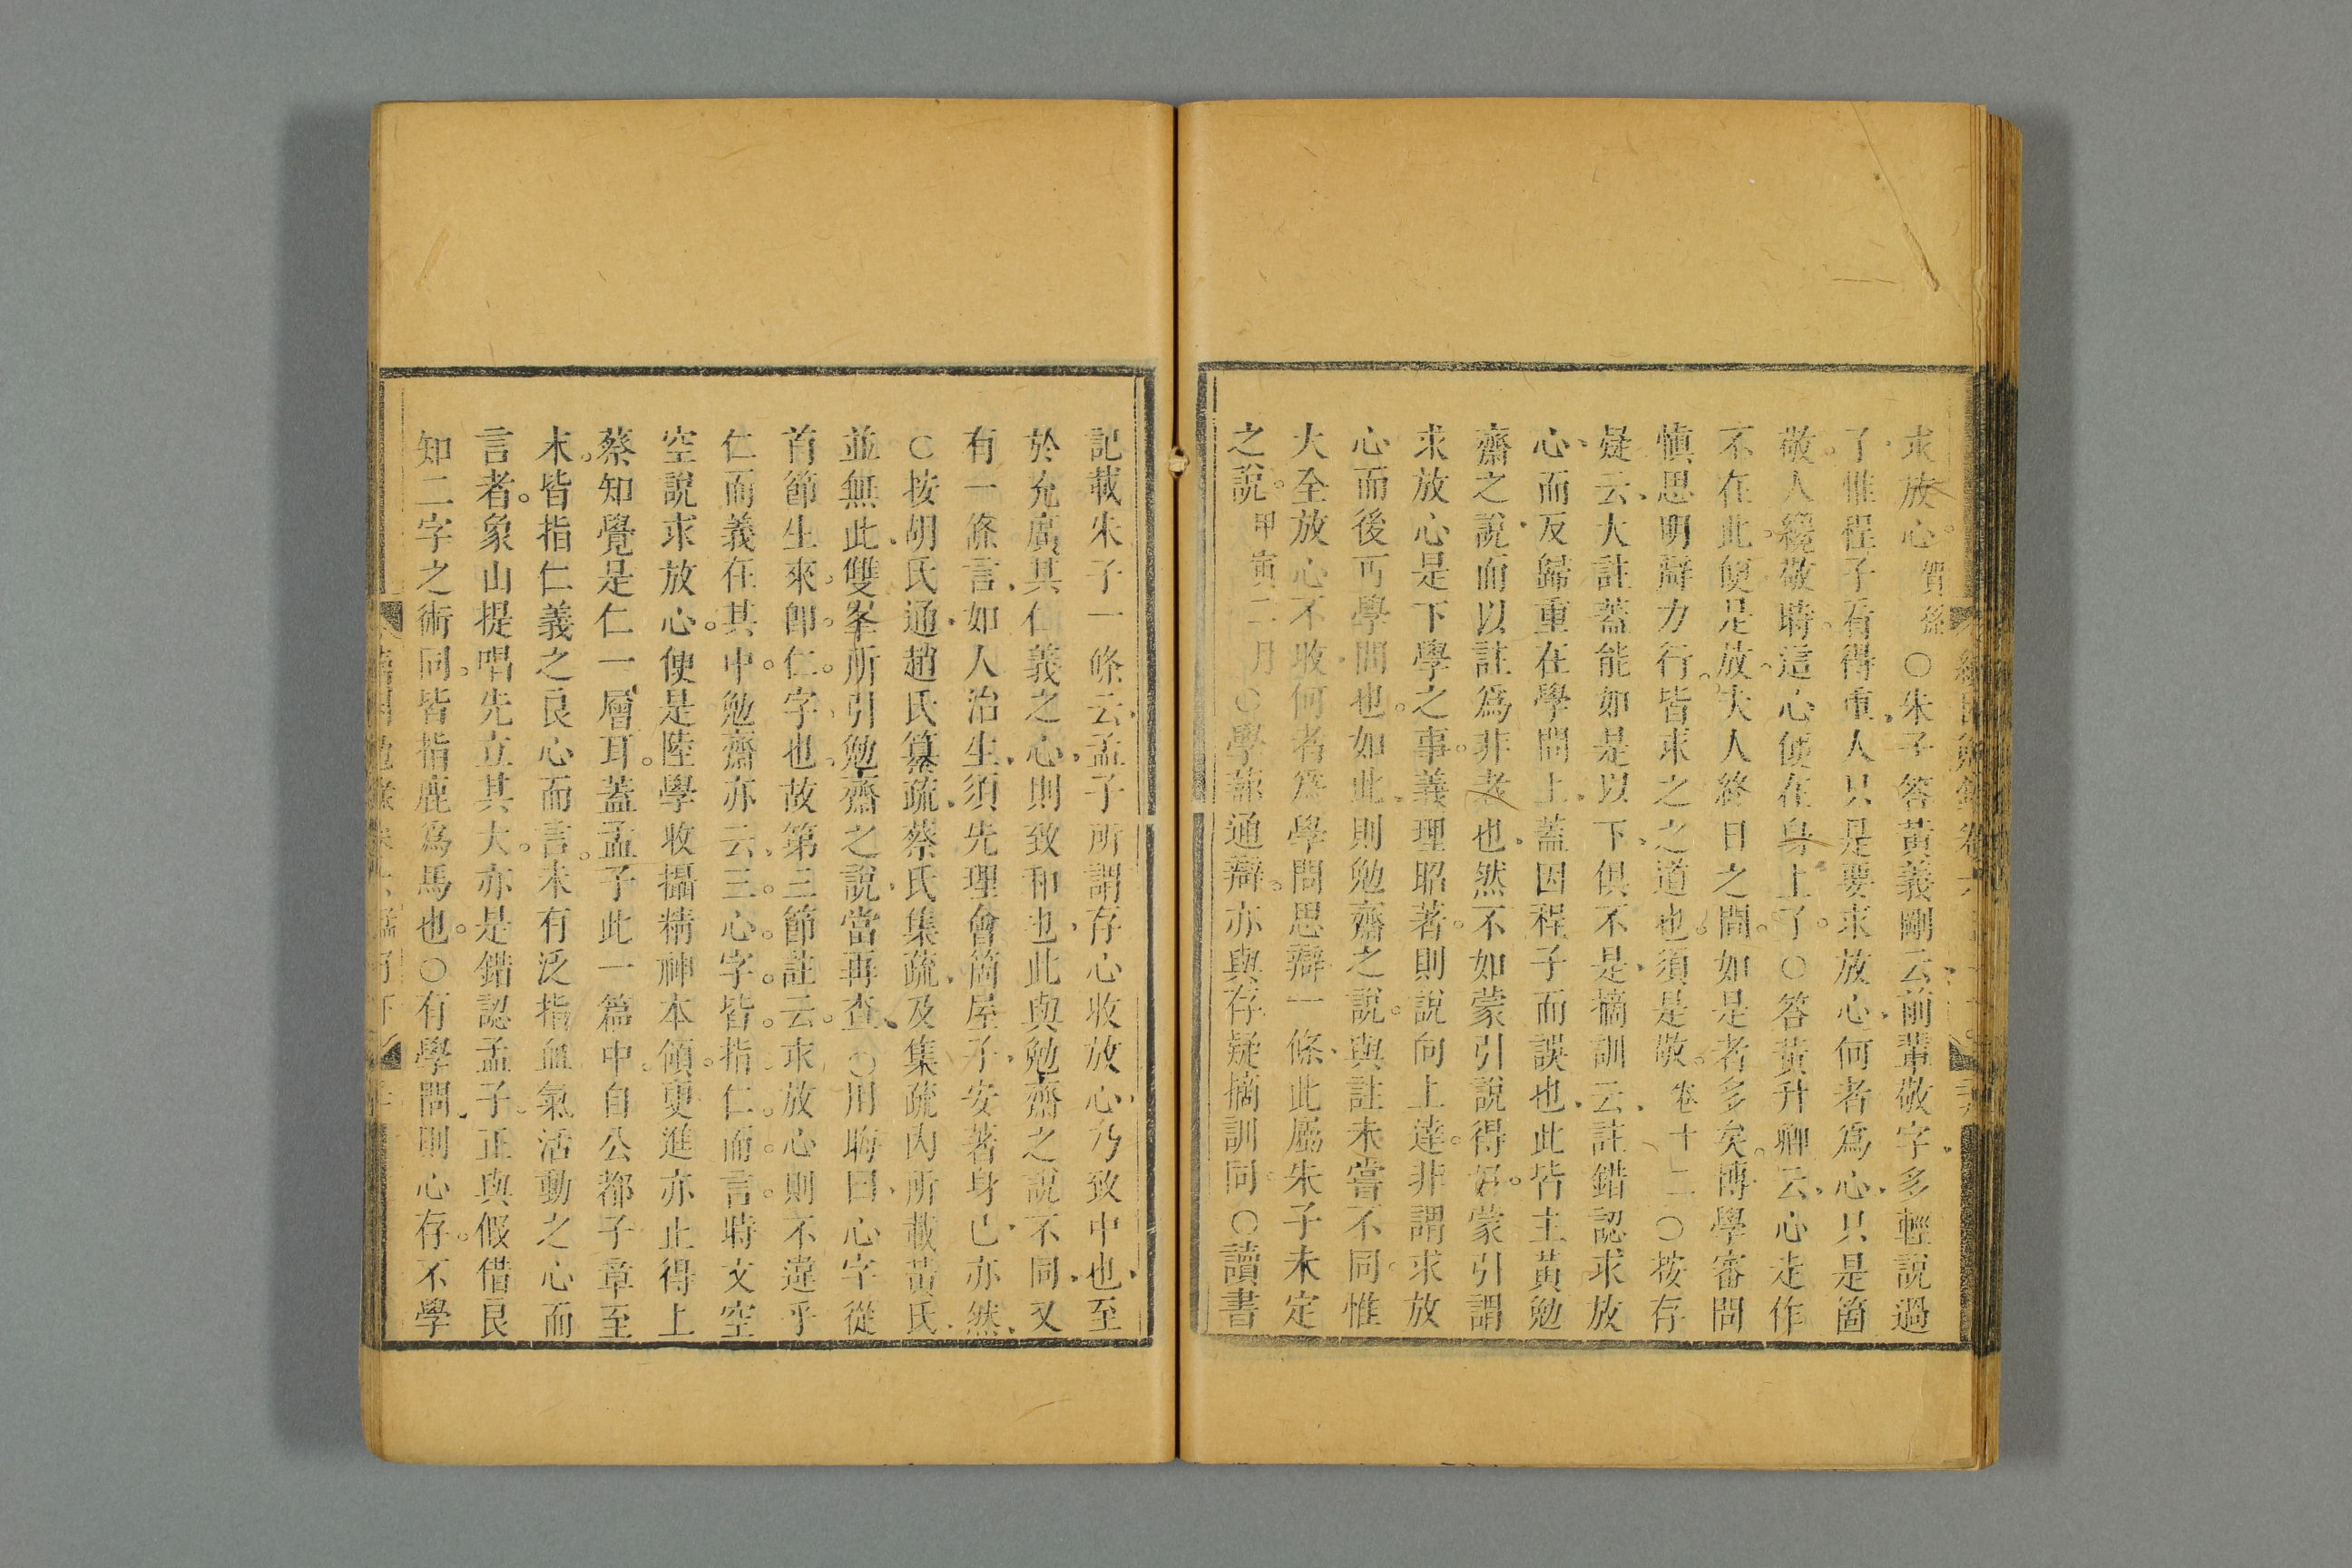 求放心。賀孫○朱子答黃義剛云前輩敬字多輕說過
了惟程子看得重人只是要求放心何者爲心只是箇
敬人纔敬時這心便在身上了。○答黃升卿云心走作
不在此便是放夫人終日之間如是者多矣博學審問
愼思明辯力行皆求之之道也須是敬。卷十二○按存
疑云大註蓋能如是以下俱不是摘訓云註錯認求放
心而反歸重在學問上蓋因程子而誤也此皆主黃勉
齋之說而以註爲非者也然不如蒙引說得好。蒙引謂
求放心是下學之事。義理昭著。則說向上達。非謂求放
心而後再學問也。如此則勉齋之說。與註未嘗不同惟
大全放心不收何者爲學問思辯一條此屬朱子未定
之說。甲寅二月○學蔀通辯亦與存疑摘訓同○讀書
記載朱子一條云孟子所謂存心收放心乃致中也至
於充廣其仁義之心則致和也此與勉齋之說不同又
有一條言如人治生須先理會箇屋子安著身已亦然
○按胡氏通趙氏纂疏蔡氏集疏及集疏內所載黃氏
並無此雙峯所引勉齋之說當再查○用晦曰心字從
首節生來。卽仁字也故第三節註云求放心則不違乎
仁而義在其中。勉齋亦云三心字皆指仁而言時文空
空說求放心。便是陸學收攝精神本領更進亦止得上
蔡知覺是仁一層耳。蓋孟子此一篇中自公都子章至
末。皆指仁義之良心而言。未有泛指血氣活動之心而
言者。象山提唱先立其大。亦是錯認孟子正與假借良
知二字之術同皆指鹿爲馬也。○有學問則心存。不學